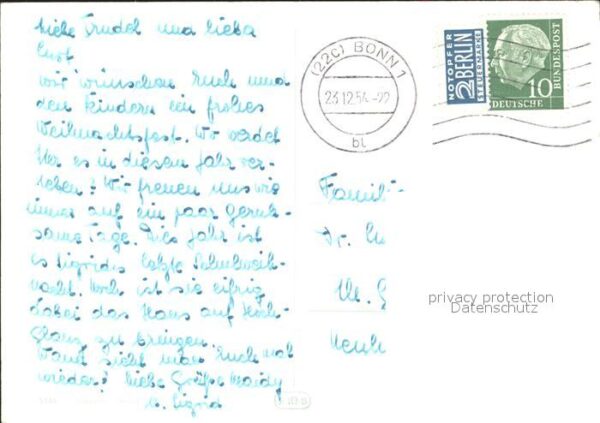 Liebe Trudel und lieber
Curt
wir wünschen Euch und
den Kindern ein frohes
Weihnachtsfest. Wo werdet
Ihr es in diesem Jahr ver-
leben? Wir freuen uns wie
immer auf ein paar geruh-
same Tage. Dies Jahr ist
es Sigrids letzte Schulweih-
nacht. Noch ist sie eifrig
dabei das Haus auf Hoch-
glanz zu bringen.
Wann sieht man Euch mal
wieder? Liebe Grüße
u. Sigrid
(22c) BONN 1
23.12.54-22
bl
NOTOPFER
2 BERLIN
STEUERMARKE
10
DEUTSCHE
BUNDESPOST
Famili
Dr.
privacy protection
Datenschutz